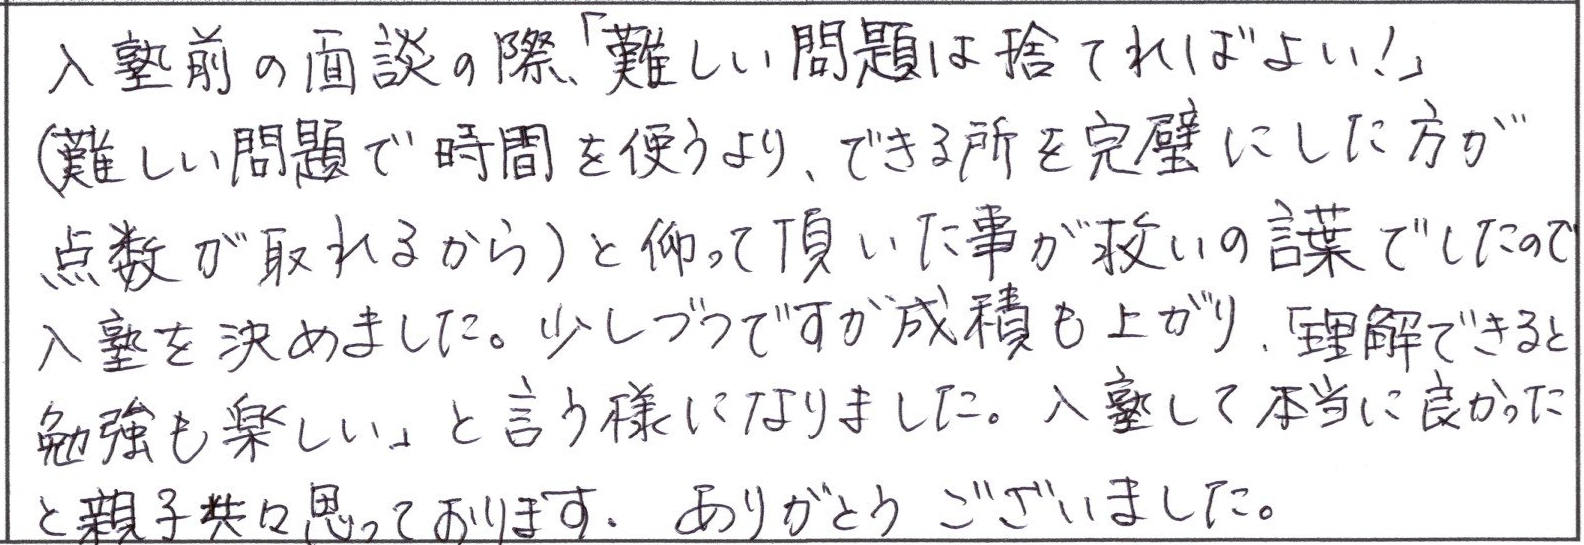 入塾前の面談の際、「難しい問題は捨てればよい!」
(難しい問題で時間を使うより、できる所を完璧にした方が
点数が取れるから)と仰って頂いた事が救いの言葉でしたので
入塾を決めました。少しづつですが成積も上がり、「理解できると
勉強も楽しい」と言う様になりました。入塾して本当に良かった
と親子共々思っております。ありがとうございました。